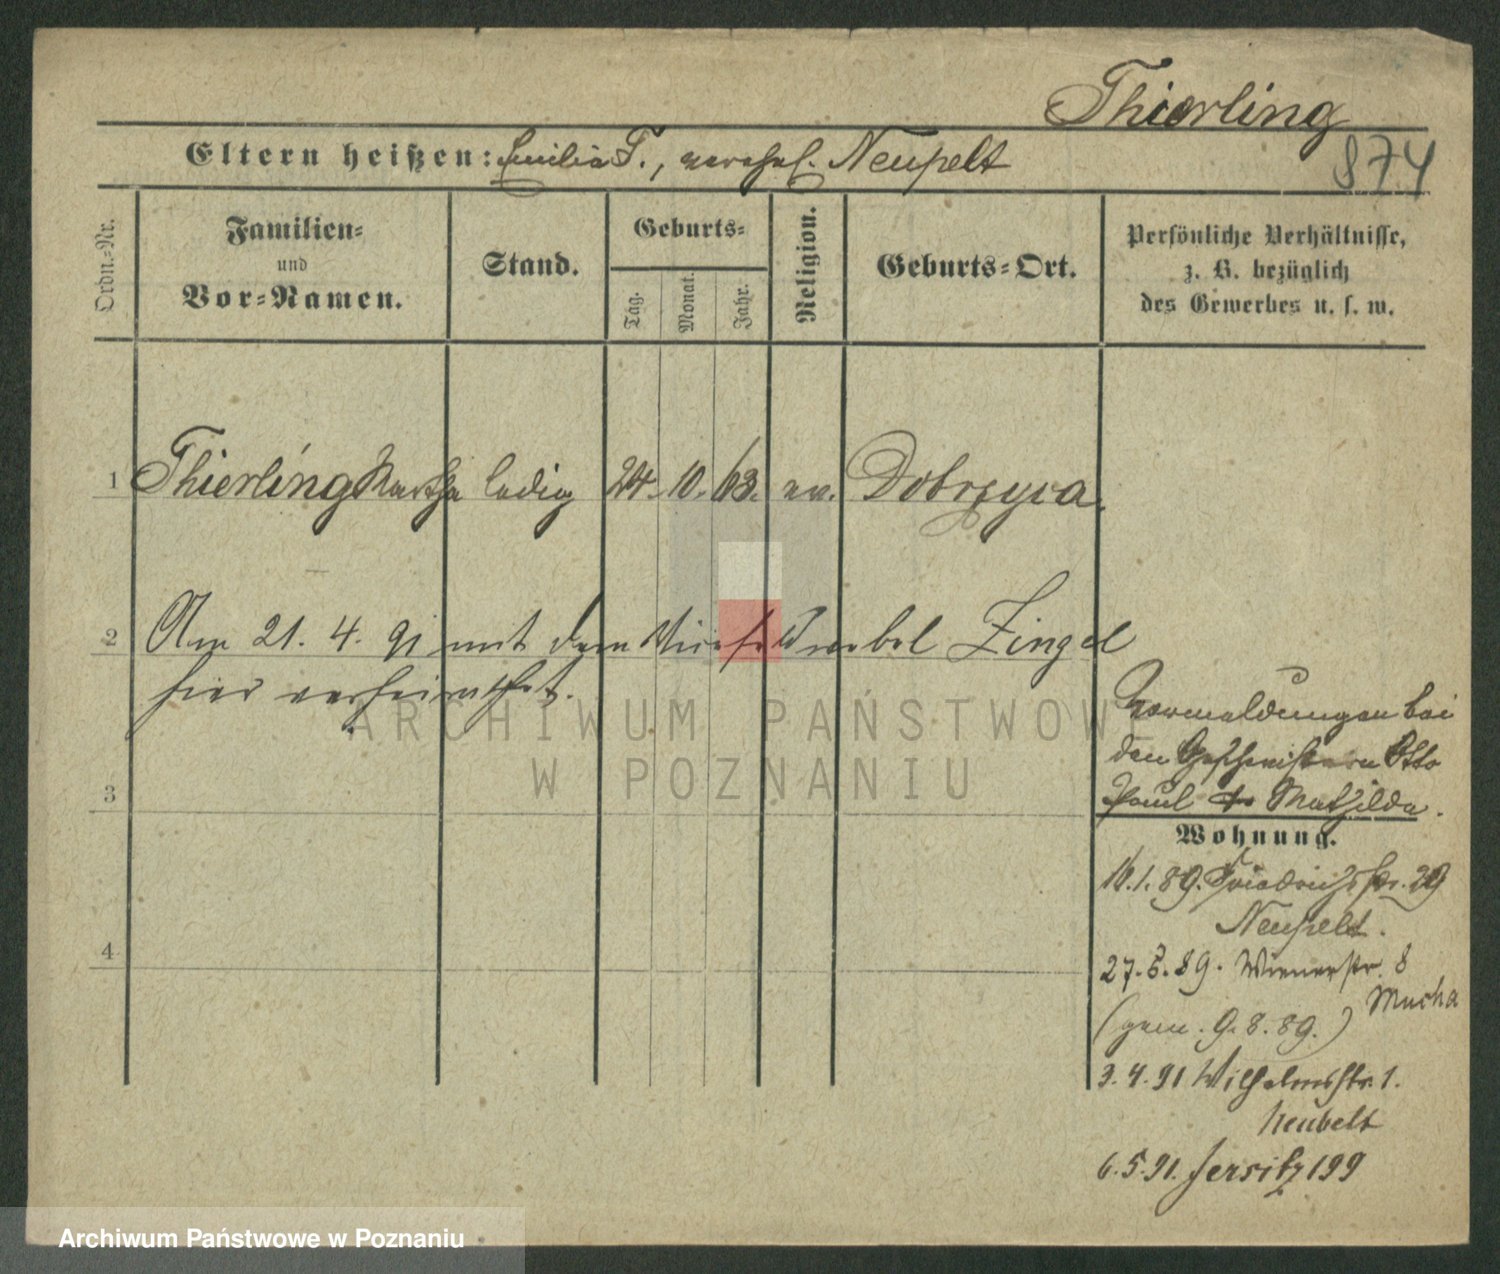 Thierling
874
Eltern heißen: Emilia T., verehel. Neupelt
Ordn.-Nr.
Familien-
und
Vor-Namen.
Stand.
Geburts-
Tag.
Monat.
Jahr.
Religion.
Geburts-Ort.
Persönliche Verhältnisse,
z. B. bezüglich
des Gewerbes u. s. w.
1 Thierling Martha ledig 24. 10. 63. ev. Dobrzyca.
2 Am 21. 4. 91 mit dem Zingel
hier verheirathet.
ARCHIWUM PAŃSTWOWE
W POZNANIU
Vormeldungen bei
den Geschwistern Otto
Paul Mathilde.
3
Wohnung.
16.1.89. Friedrichstr. 29
Neupelt.
4
27.5.89. Wienerstr. 8
Mucha
(gem. 9.8.89.)
3.4.91 Wilhelmstr. 1.
Neubelt
6.5.91. Jersitz 199
Archiwum Państwowe w Poznaniu